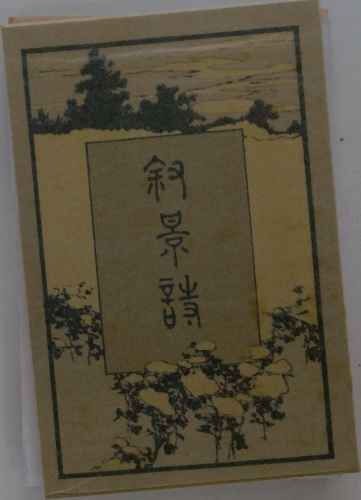 叙景詩